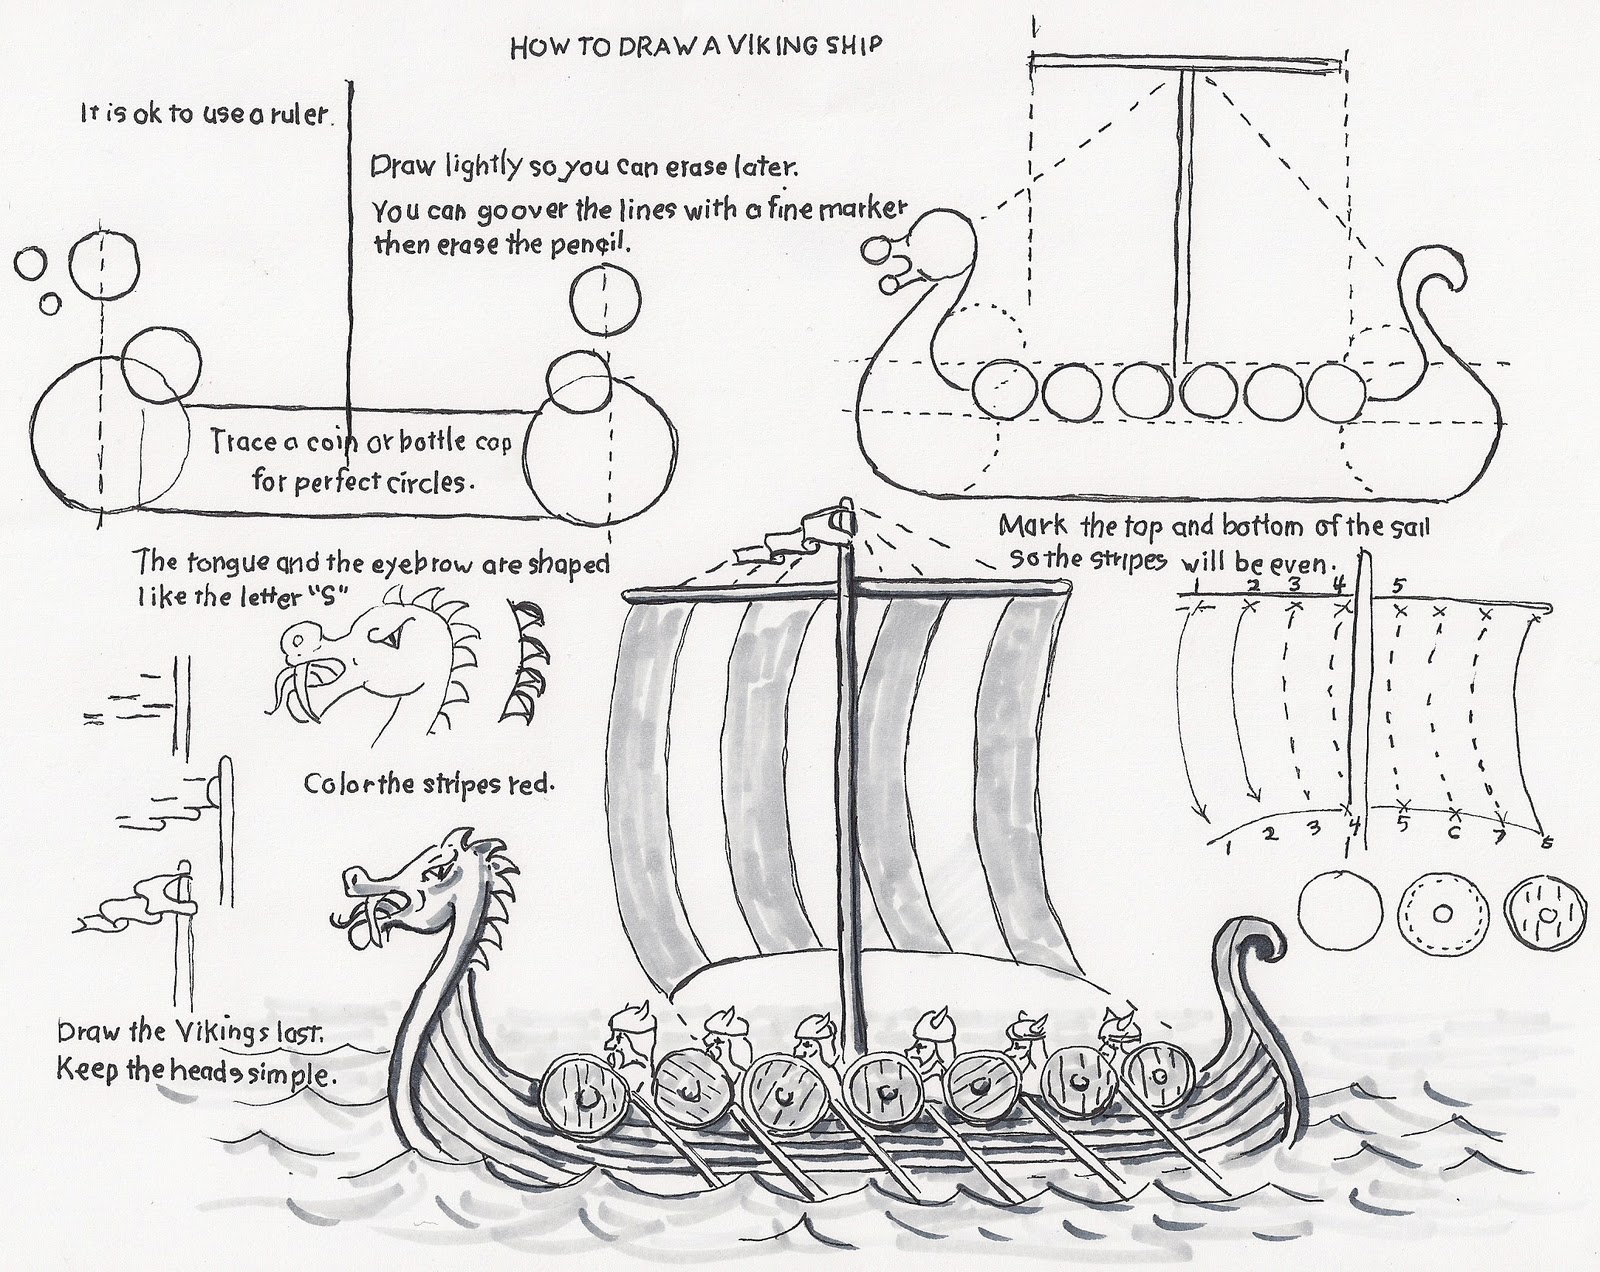 HOW TO DRAW A VIKING SHIP
It is ok to use a ruler.
Draw lightly so you can erase later.
You can go over the lines with a fine marker
then erase the pencil.
Trace a coin or bottle cap
for perfect circles.
Mark the top and bottom of the sail
so the stripes will be even.
1 2 3 4 5
1 2 3 4 5 6 7 8
The tongue and the eyebrow are shaped
like the letter "S"
Color the stripes red.
Draw the Vikings last.
Keep the heads simple.